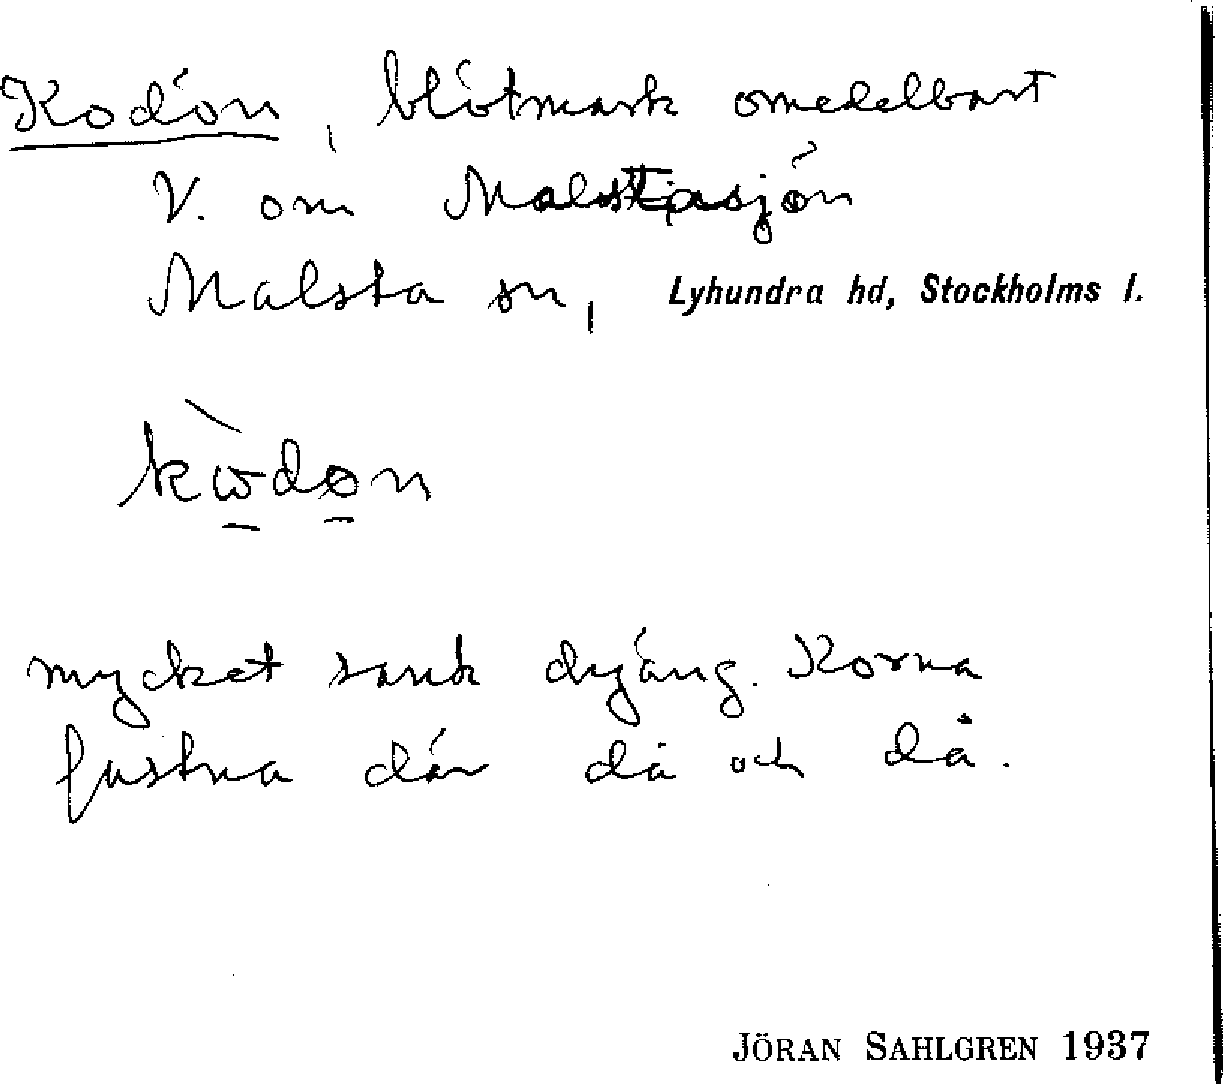 Kodön, blötmark omedelbart
V. om Malstasjön
Malsta sn, Lyhundra hd, Stockholms l.
kѡ̀don
mycket sank dyäng. Korna
fastna där då och då.
JÖRAN SAHLGREN 1937